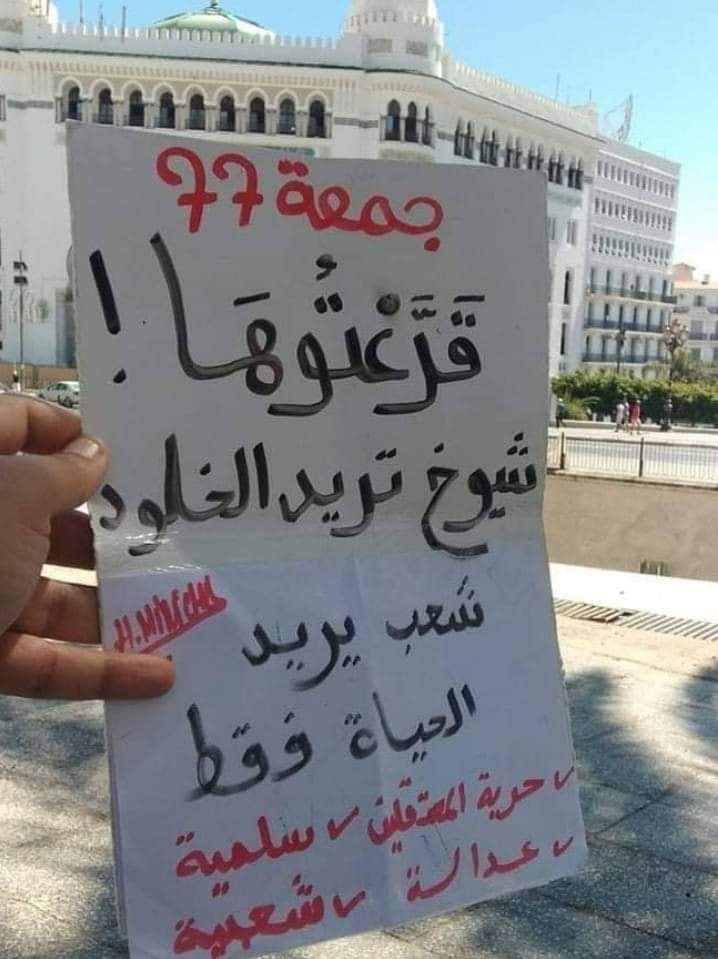 جمعة 77
قَرَّعْتُوهَا!
شيوخ تريد الخلود
شعب يريد
H.MiliaNi
الحياة فقط
✓ حرية المعتقلين ✓ سلمية
✓ عدالة ✓ شعبية